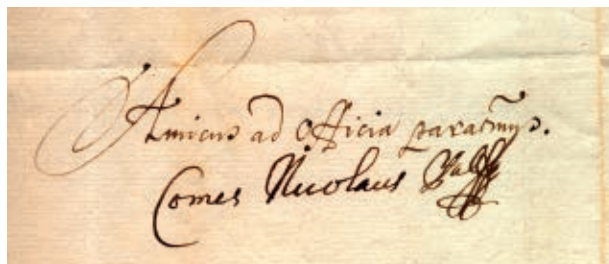 Amicus ad officia paratmus.
Comes Nicolaus Palffy